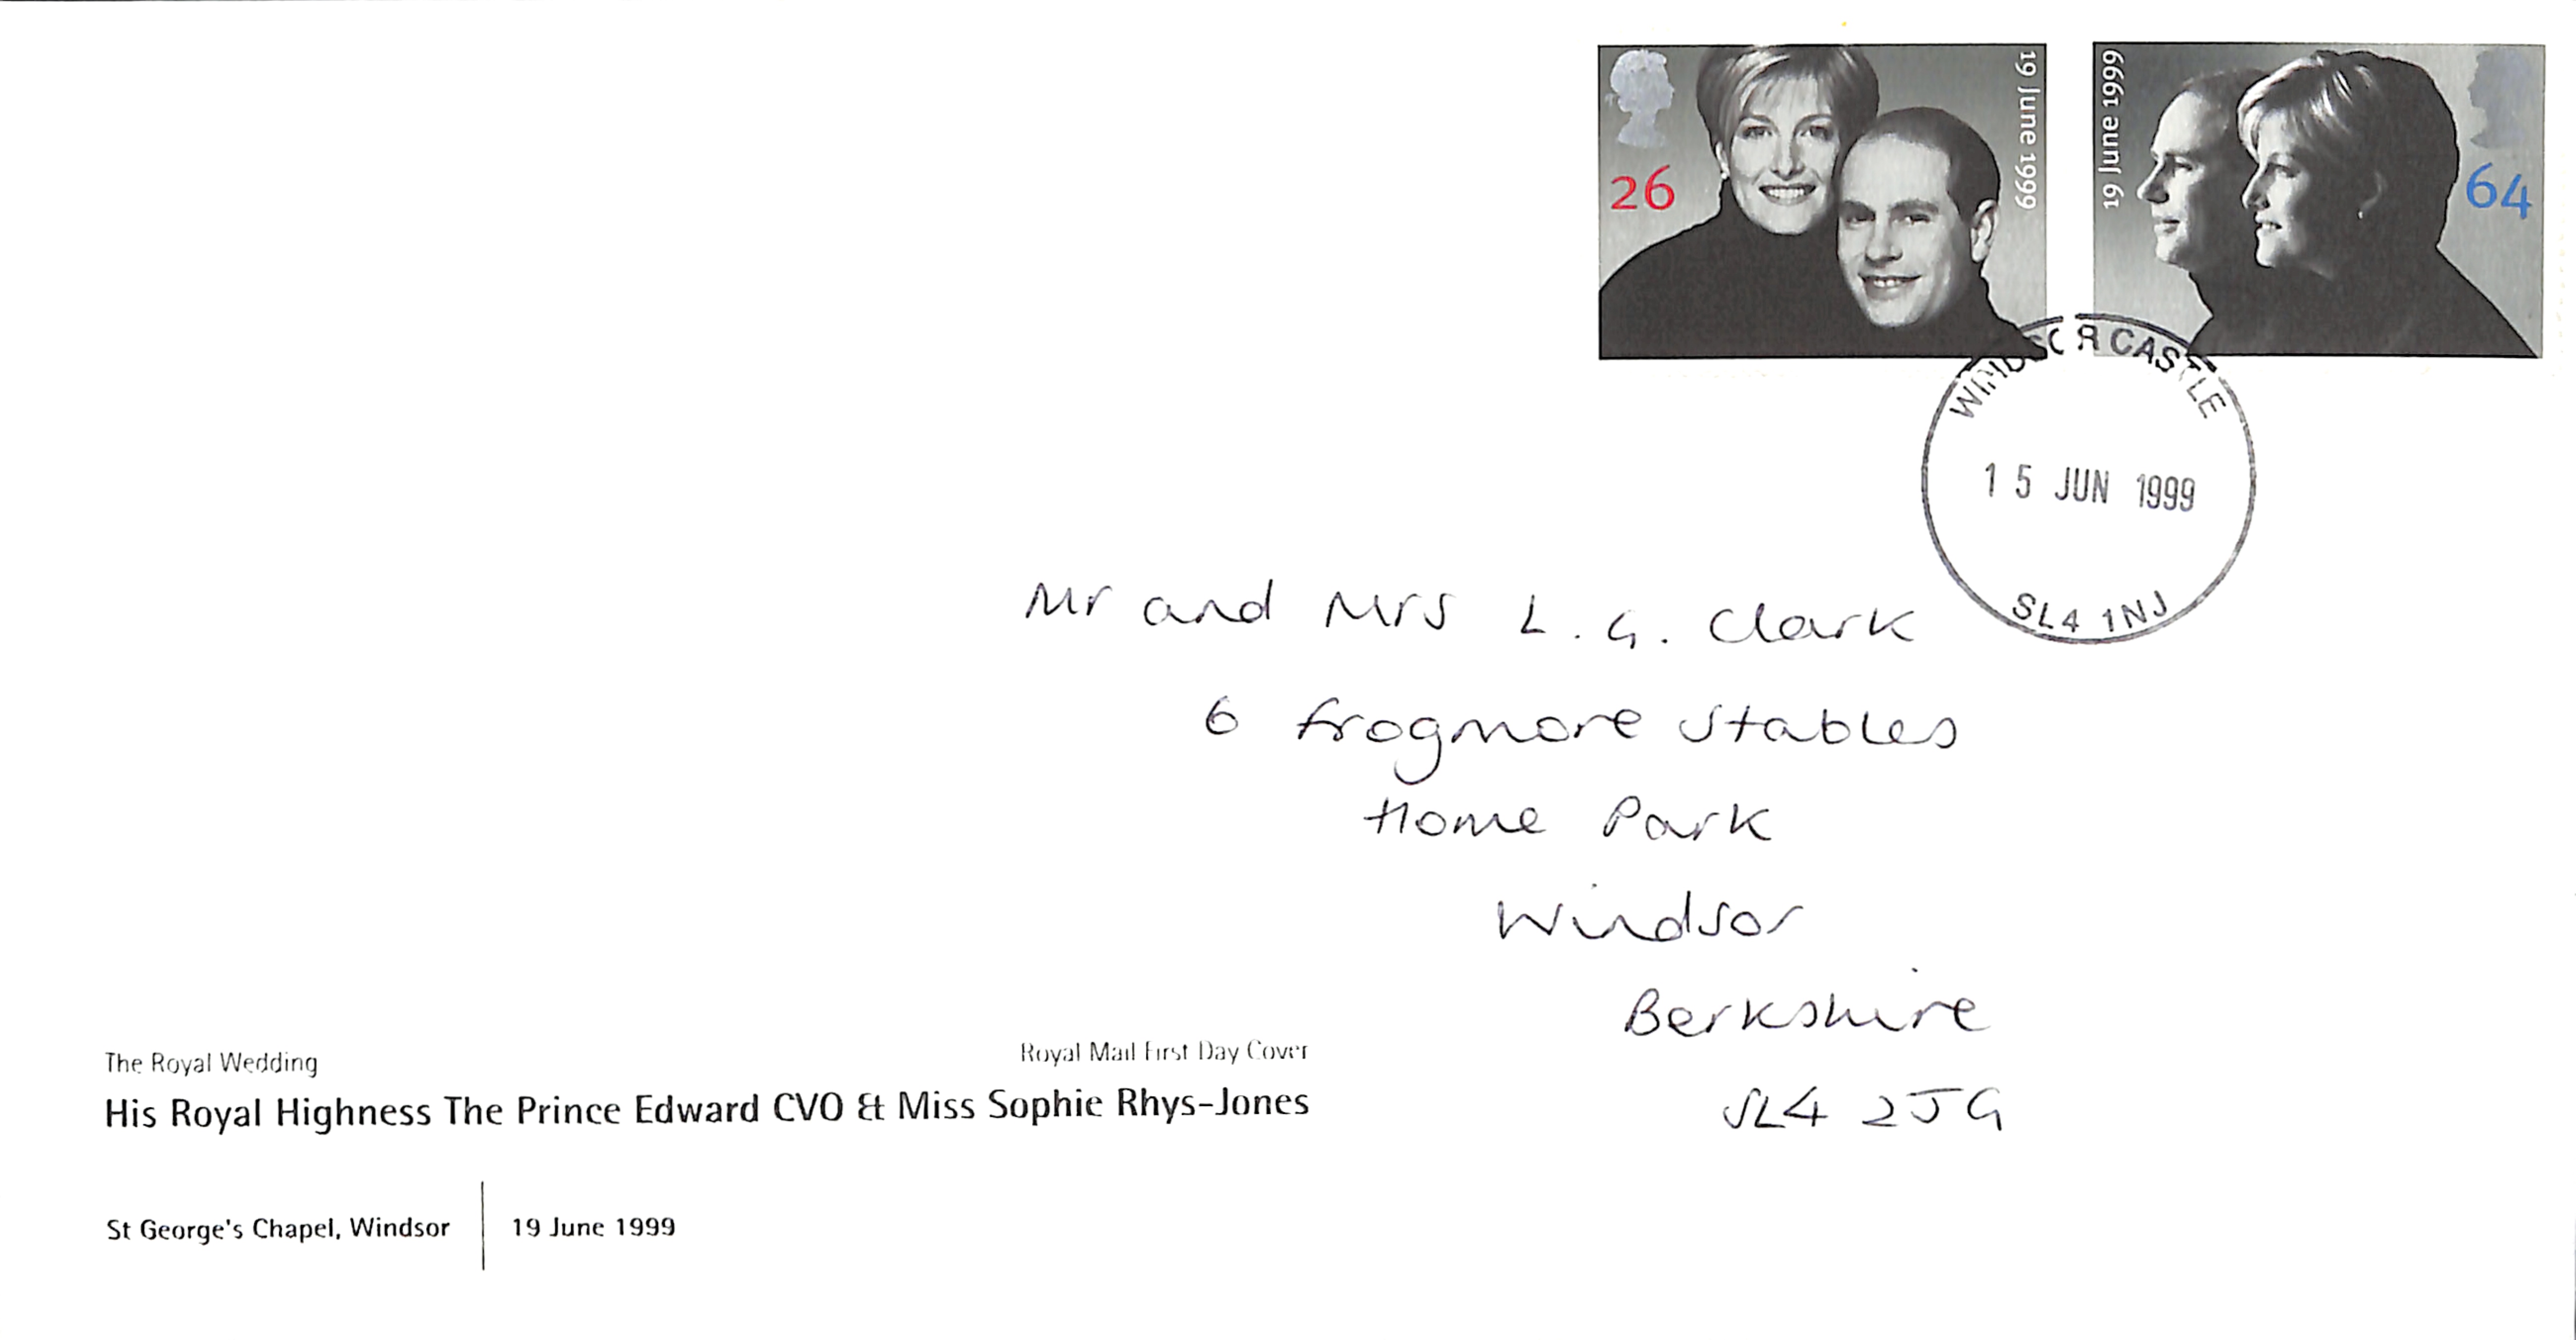 26
19 June 1999
19 June 1999
64
WINDSOR CASTLE
15 JUN 1999
SL4 1NJ
Mr and Mrs L. G. Clark
6 Frogmore Stables
Home Park
Windsor
Berkshire
SL4 2JG
The Royal Wedding
Royal Mail First Day Cover
His Royal Highness The Prince Edward CVO & Miss Sophie Rhys-Jones
St George's Chapel, Windsor
19 June 1999